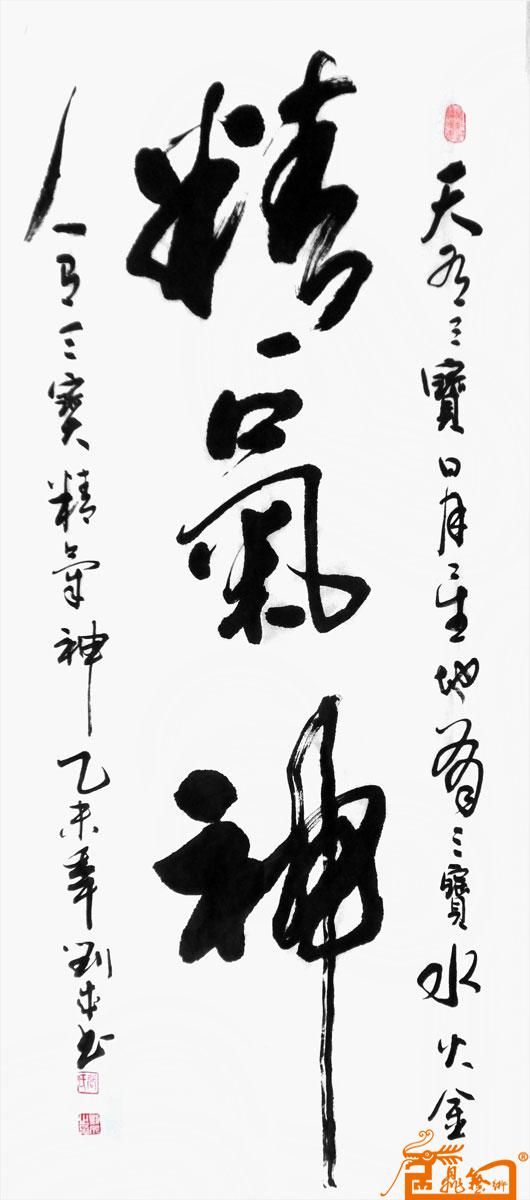 天有三寶日月星地有三寶水火金
精氣神
人有三寶精氣神乙未年劉书